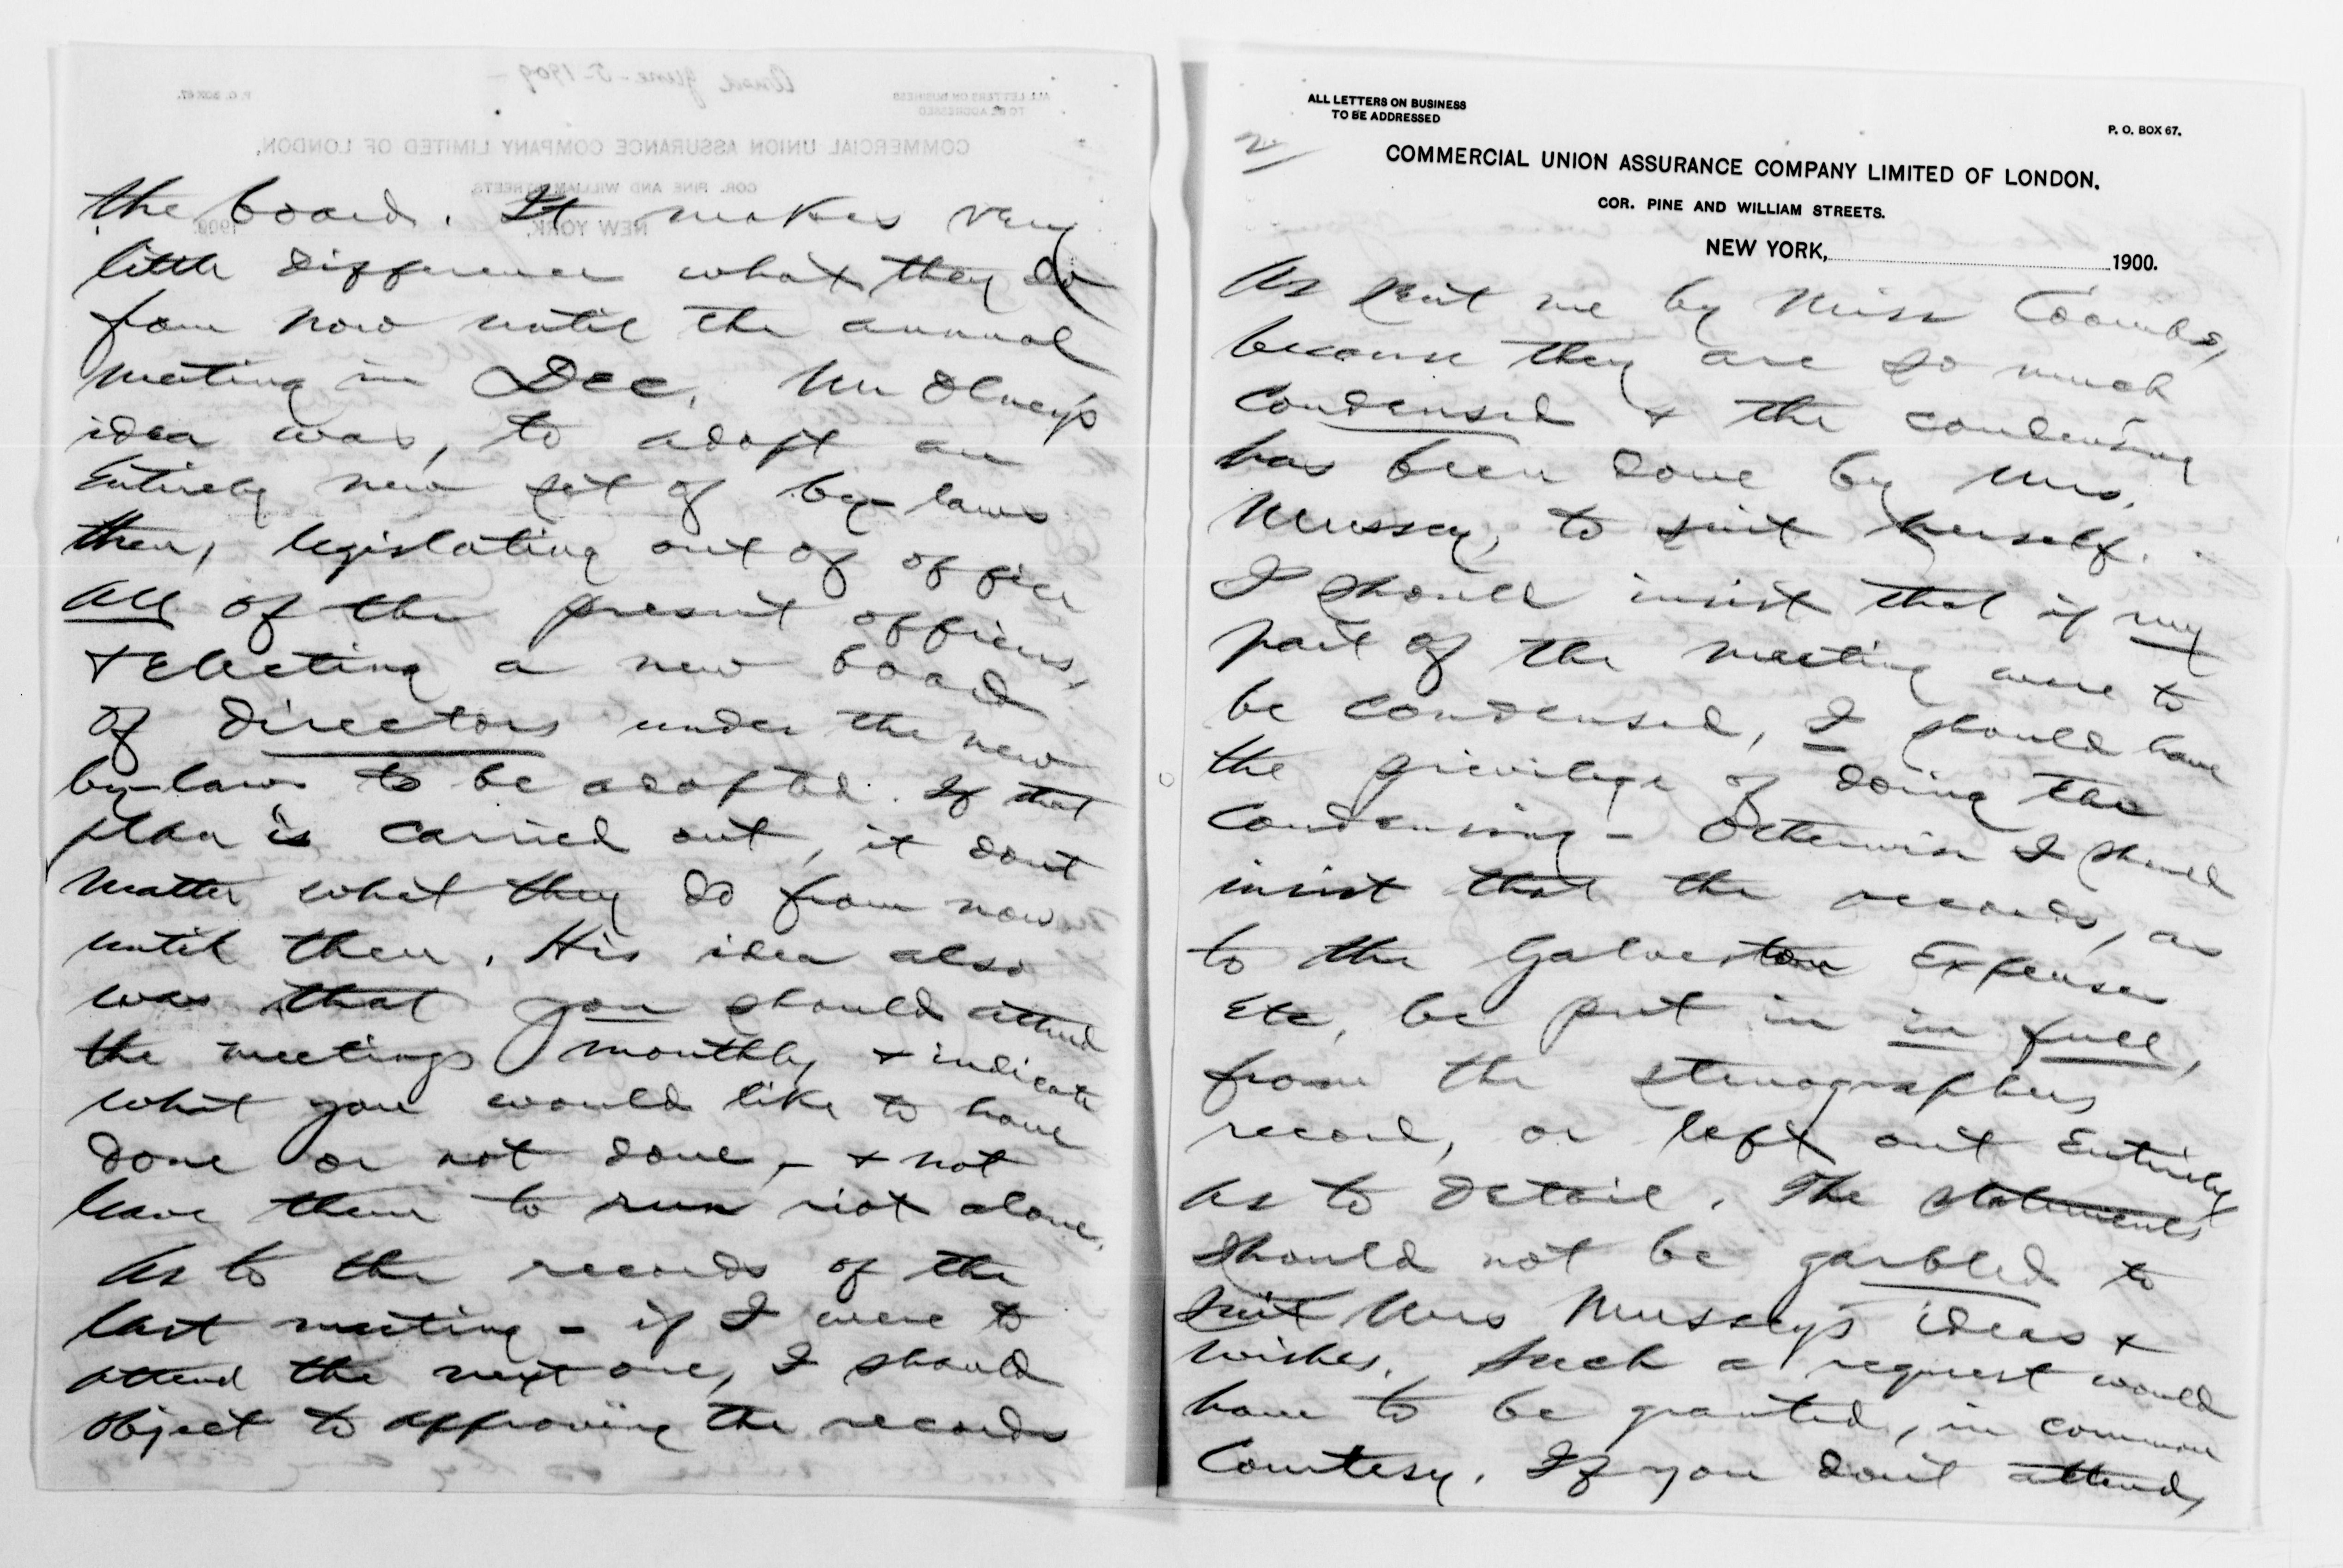 the board. It makes very
little difference what they do
from now until the annual
meeting in Dec. Mr Olney's
idea was, to adopt an
Entirely new set of by-laws
then, legislating out of office
all of the present officers,
+ electing a new board
of directors under the new
by-laws to be adopted. If that
plan is carried out, it dont
matter what they do from now
until then. His idea also
was that you should attend
the meetings monthly + indicate
what you would like to have
done or not done, - + not
leave them to run riot alone.
As to the records of the
last meeting - if I were to
attend the next one, I should
object to approving the records
ALL LETTERS ON BUSINESS
TO BE ADDRESSED
P. O. BOX 67.
2
COMMERCIAL UNION ASSURANCE COMPANY LIMITED OF LONDON.
COR. PINE AND WILLIAM STREETS.
NEW YORK, 1900.
As sent me by Miss Coombs,
because they are so much
condensed + the condensing
has been done by Mrs.
Mussey, to suit herself.
I should insist that if my
part of the meeting were to
be condensed, I should have
the privilege of doing the
Condensing - Otherwise I should
insist that the records, as
to the Galveston Expenses
Etc, be put in in full,
from the stenographers
record, or left out Entirely
as to detail. The statements
should not be garbled to
suit Mrs Mussey's ideas +
wishes. Such a request would
have to be granted, in common
Courtesy. If you don't attend,